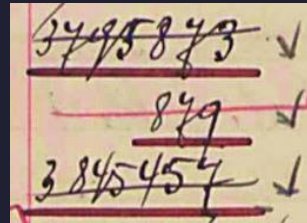 3795873
879
3845457